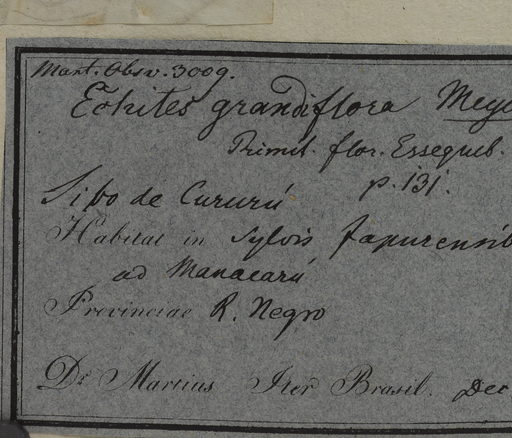 Mart. Obsv. 3009.
Echites grandiflora Meye
Primit. flor. Essequeb.
p. 131.
Sipo de Cururú
Habitat in sylvis Japurensib
ad Manacarú
Provinciae R. Negro
Dr Martius Iter Brasil. Dec